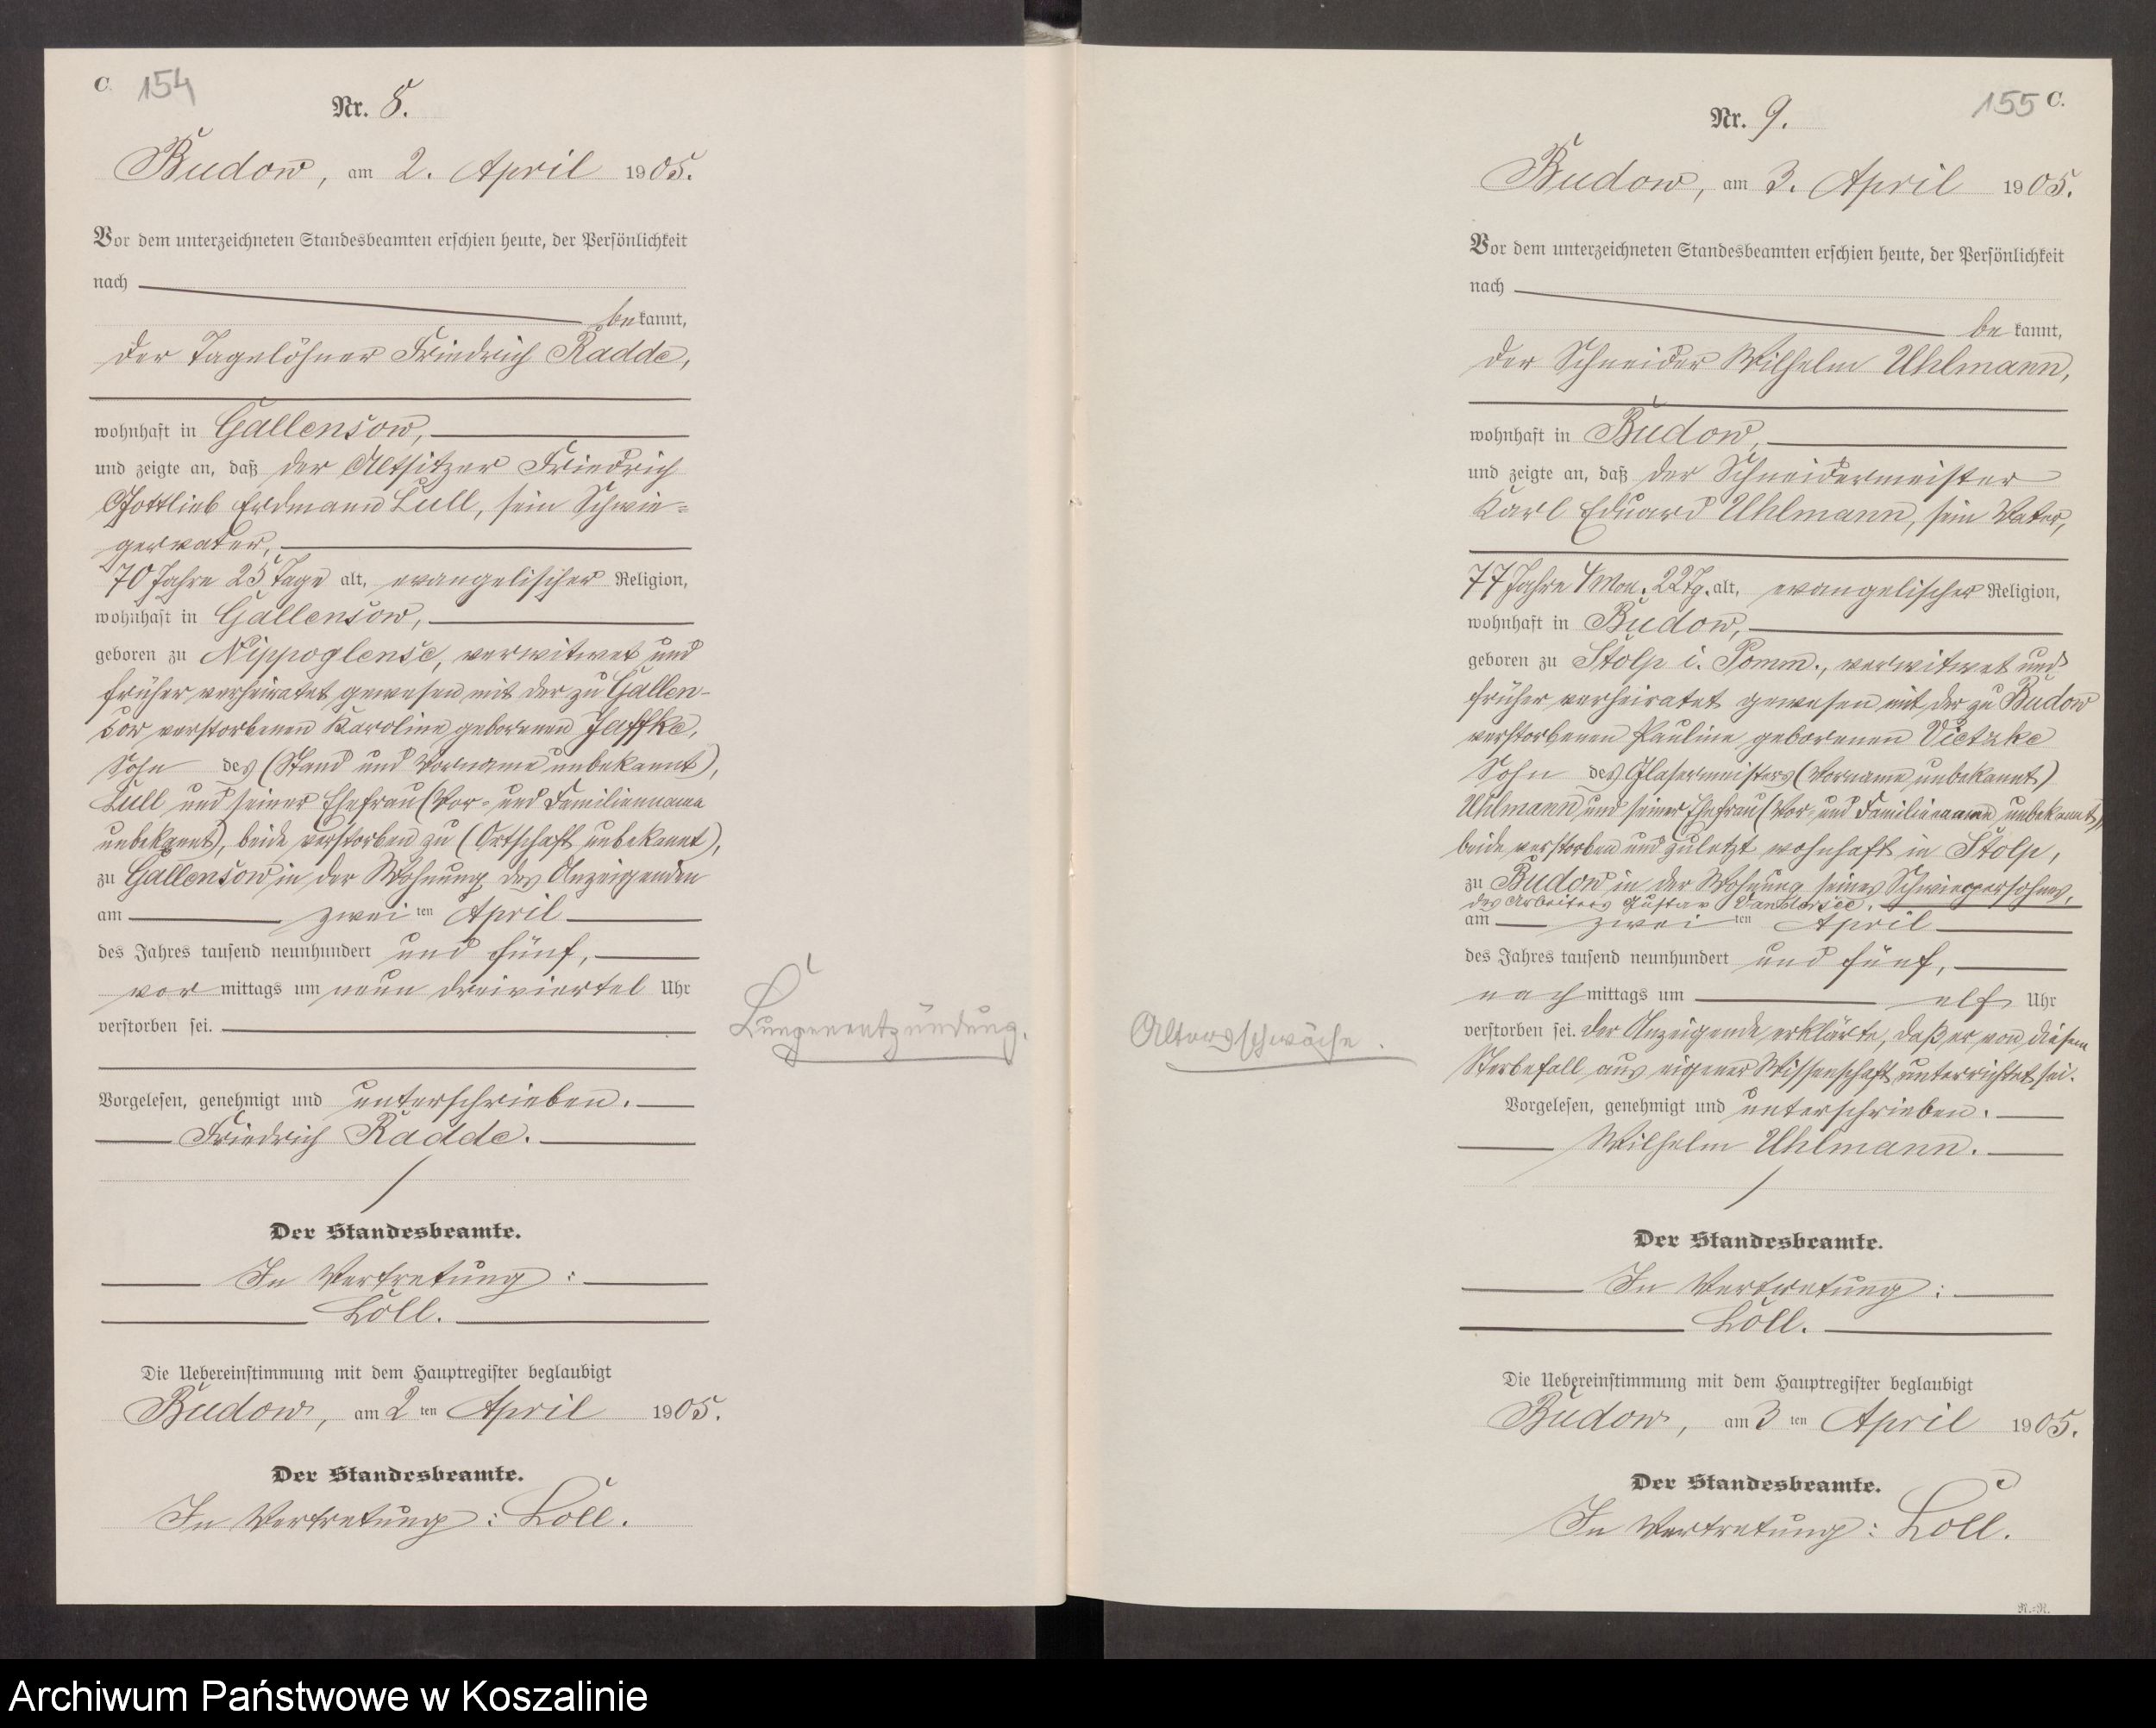 C. 154
Nr. 8.
Budow, am 2. April 1905.
Vor dem unterzeichneten Standesbeamten erschien heute, der Persönlichkeit
nach
bekannt,
der Tagelöhner Friedrich Radde,
wohnhaft in Gallensow,
und zeigte an, daß der Altsitzer Friedrich
Gottlieb Erdmann Lull, sein Schwie=
gervater,
70 Jahre 25 Tage alt, evangelischer Religion,
wohnhaft in Gallensow,
geboren zu Nippoglense, verwitwet und
früher verheiratet gewesen mit der zu Gallen-
sow verstorbenen Karoline geborenen Jaffke,
Sohn des (Stand und Vorname unbekannt),
Lull und seiner Ehefrau (Vor- und Familienname
unbekannt), beide verstorben zu (Ortschaft unbekannt),
zu Gallensow in der Wohnung des Anzeigenden
am zwei ten April
des Jahres tausend neunhundert und fünf,
vor mittags um neun dreiviertel Uhr
verstorben sei.
Lungenentzündung.
Vorgelesen, genehmigt und unterschrieben.
Friedrich Radde.
Der Standesbeamte.
In Vertretung:
Löll.
Die Uebereinstimmung mit dem Hauptregister beglaubigt
Budow, am 2 ten April 1905.
Der Standesbeamte.
In Vertretung: Löll.
155 C.
Nr. 9.
Budow, am 3. April 1905.
Vor dem unterzeichneten Standesbeamten erschien heute, der Persönlichkeit
nach
be kannt,
der Schneider Wilhelm Uhlmann,
wohnhaft in Budow,
und zeigte an, daß der Schneidermeister
Karl Eduard Uhlmann, sein Vater,
77 Jahre 4 Mon. 22 Tg. alt, evangelischer Religion,
wohnhaft in Budow,
geboren zu Stolp i. Pomm., verwitwet und
früher verheiratet gewesen mit der zu Budow
verstorbenen Pauline geborenen Vietzke
Sohn des Glasermeisters (Vorname unbekannt)
Uhlmann und seiner Ehefrau (Vor- und Familienname unbekannt),
beide verstorben und zuletzt wohnhaft in Stolp,
zu Budow in der Wohnung seines Schwiegersohnes,
des Arbeiters Gustav Vandersee,
am zwei ten April
des Jahres tausend neunhundert und fünf,
nach mittags um elf Uhr
verstorben sei. Der Anzeigende erklärte, daß er von diesem
Sterbefall aus eigener Wissenschaft unterrichtet sei.
Altersschwäche.
Vorgelesen, genehmigt und unterschrieben.
Wilhelm Uhlmann.
Der Standesbeamte.
In Vertretung:
Löll.
Die Uebereinstimmung mit dem Hauptregister beglaubigt
Budow, am 3 ten April 1905.
Der Standesbeamte.
In Vertretung: Löll.
R.=R.
Archiwum Państwowe w Koszalinie